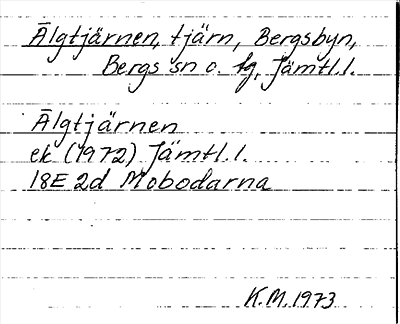 Älgtjärnen, tjärn, Bergsbyn,
Bergs sn o. tg, Jämtl.l.
Älgtjärnen
ek (1972) Jämtl.l.
18E 2d Mobodarna
K.M. 1973